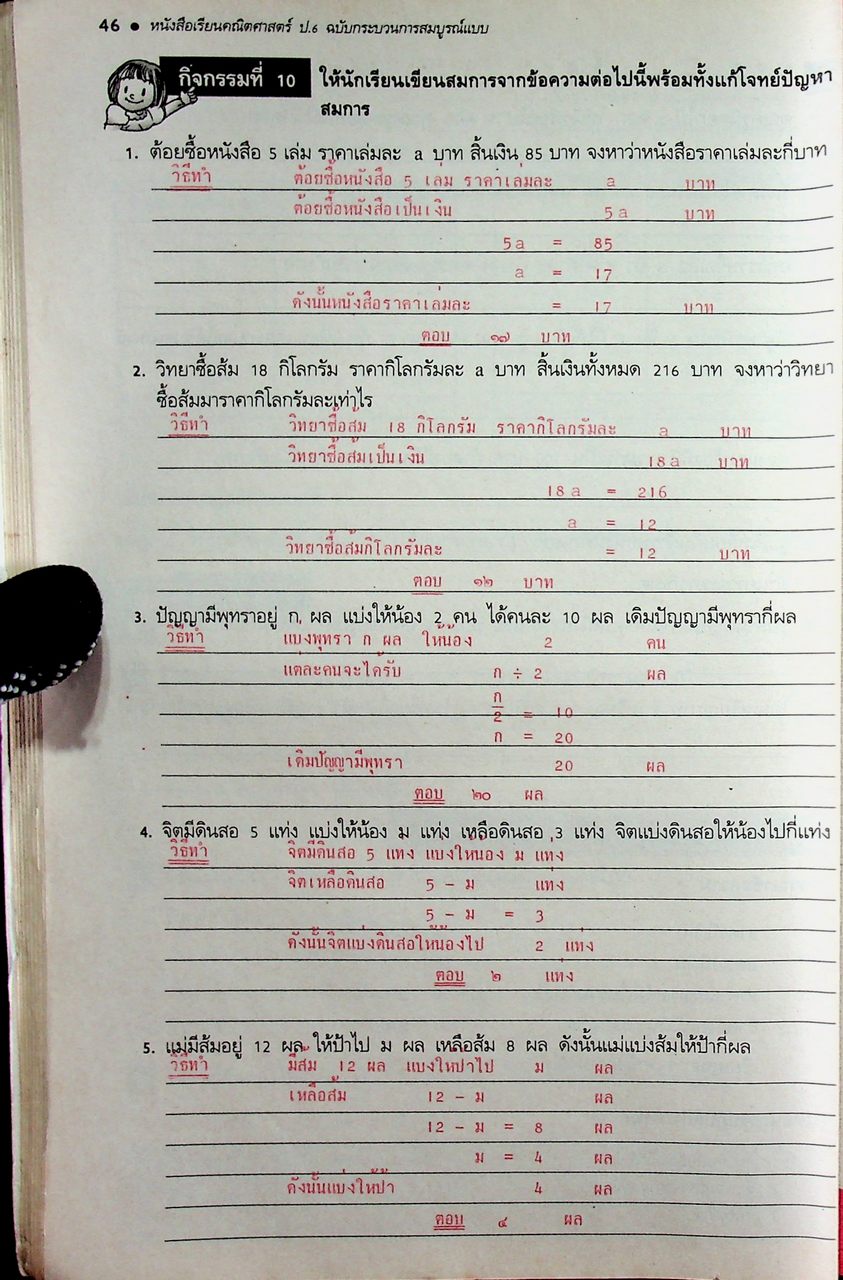 46 ● หนังสือเรียนคณิตศาสตร์ ป.6 ฉบับกระบวนการสมบูรณ์แบบ
กิจกรรมที่ 10 ให้นักเรียนเขียนสมการจากข้อความต่อไปนี้พร้อมทั้งแก้โจทย์ปัญหา
สมการ
1. ต้อยซื้อหนังสือ 5 เล่ม ราคาเล่มละ a บาท สิ้นเงิน 85 บาท จงหาว่าหนังสือราคาเล่มละกี่บาท
วิธีทำ ต้อยซื้อหนังสือ 5 เล่ม ราคาเล่มละ a บาท
ต้อยซื้อหนังสือเป็นเงิน 5a บาท
5a = 85
a = 17
ดังนั้นหนังสือราคาเล่มละ = 17 บาท
ตอบ ๑๗ บาท
2. วิทยาซื้อส้ม 18 กิโลกรัม ราคากิโลกรัมละ a บาท สิ้นเงินทั้งหมด 216 บาท จงหาว่าวิทยา
ซื้อส้มมาราคากิโลกรัมละเท่าไร
วิธีทำ วิทยาซื้อส้ม 18 กิโลกรัม ราคากิโลกรัมละ a บาท
วิทยาซื้อส้มเป็นเงิน 18a บาท
18a = 216
a = 12
วิทยาซื้อส้มกิโลกรัมละ = 12 บาท
ตอบ ๑๒ บาท
3. ปัญญามีพุทราอยู่ ก ผล แบ่งให้น้อง 2 คน ได้คนละ 10 ผล เดิมปัญญามีพุทรากี่ผล
วิธีทำ แบ่งพุทรา ก ผล ให้น้อง 2 คน
แต่ละคนจะได้รับ ก ÷ 2 ผล
ก/2 = 10
ก = 20
เดิมปัญญามีพุทรา 20 ผล
ตอบ ๒๐ ผล
4. จิตมีดินสอ 5 แท่ง แบ่งให้น้อง ม แท่ง เหลือดินสอ 3 แท่ง จิตแบ่งดินสอให้น้องไปกี่แท่ง
วิธีทำ จิตมีดินสอ 5 แท่ง แบ่งให้น้อง ม แท่ง
จิตเหลือดินสอ 5 - ม แท่ง
5 - ม = 3
ดังนั้นจิตแบ่งดินสอให้น้องไป 2 แท่ง
ตอบ ๒ แท่ง
5. แม่มีส้มอยู่ 12 ผล ให้ป้าไป ม ผล เหลือส้ม 8 ผล ดังนั้นแม่แบ่งส้มให้ป้ากี่ผล
วิธีทำ มีส้ม 12 ผล แบ่งให้ป้าไป ม ผล
เหลือส้ม 12 - ม ผล
12 - ม = 8 ผล
ม = 4 ผล
ดังนั้นแบ่งให้ป้า 4 ผล
ตอบ ๔ ผล